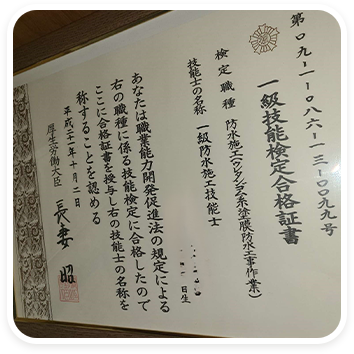 第09-1-086-13-0099号
一級技能検定合格証書
検定職種 防水施工(ウレタンゴム系塗膜防水工事作業)
技能士の名称 一級防水施工技能士
日生
あなたは職業能力開発促進法の規定による
右の職種に係る技能検定に合格したので
ここに合格証書を授与し右の技能士の名称を
称することを認める
平成二十一年十月二日
厚生労働大臣 長妻 昭